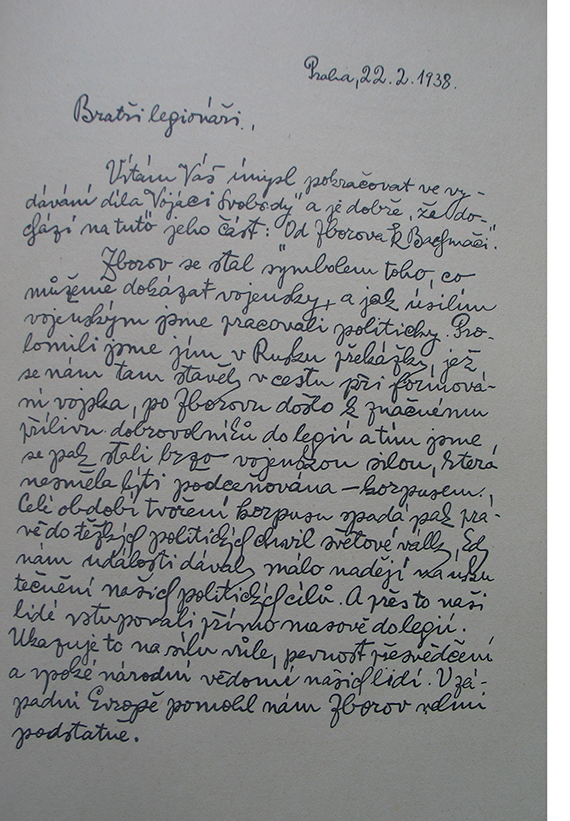 Praha, 22.2.1938.
Bratři legionáři.,
Vítám Váš úmysl pokračovat ve vy-
dávání díla "Vojáci Svobody" a je dobře, že do-
chází na tuto jeho část: "Od Zborova k Bachmači".
Zborov se stal symbolem toho, co
můžeme dokázat vojensky, a jak úsilím
vojenským jsme pracovali politicky. Pro-
lomili jsme jím v Rusku překážky, jež
se nám tam stavěly v cestu při formová-
ní vojska, po Zborovu došlo k značnému
přílivu dobrovolníků do legií a tím jsme
se pak stali brzo vojenskou silou, která
nesměla býti podceňována – korpusem.,
Celé období tvoření korpusu spadá pak prá-
vě do těžkých politických chvil světové války, kdy
nám události dávaly málo nadějí na usku
tečnění našich politických cílů. A přes to naši
lidé vstupovali přímo masově do legií.
Ukazuje to na sílu vůle, pevnost přesvědčení
a vysoké národní vědomí našich lidí. V zá-
padní Evropě pomohl nám Zborov velmi
podstatně.